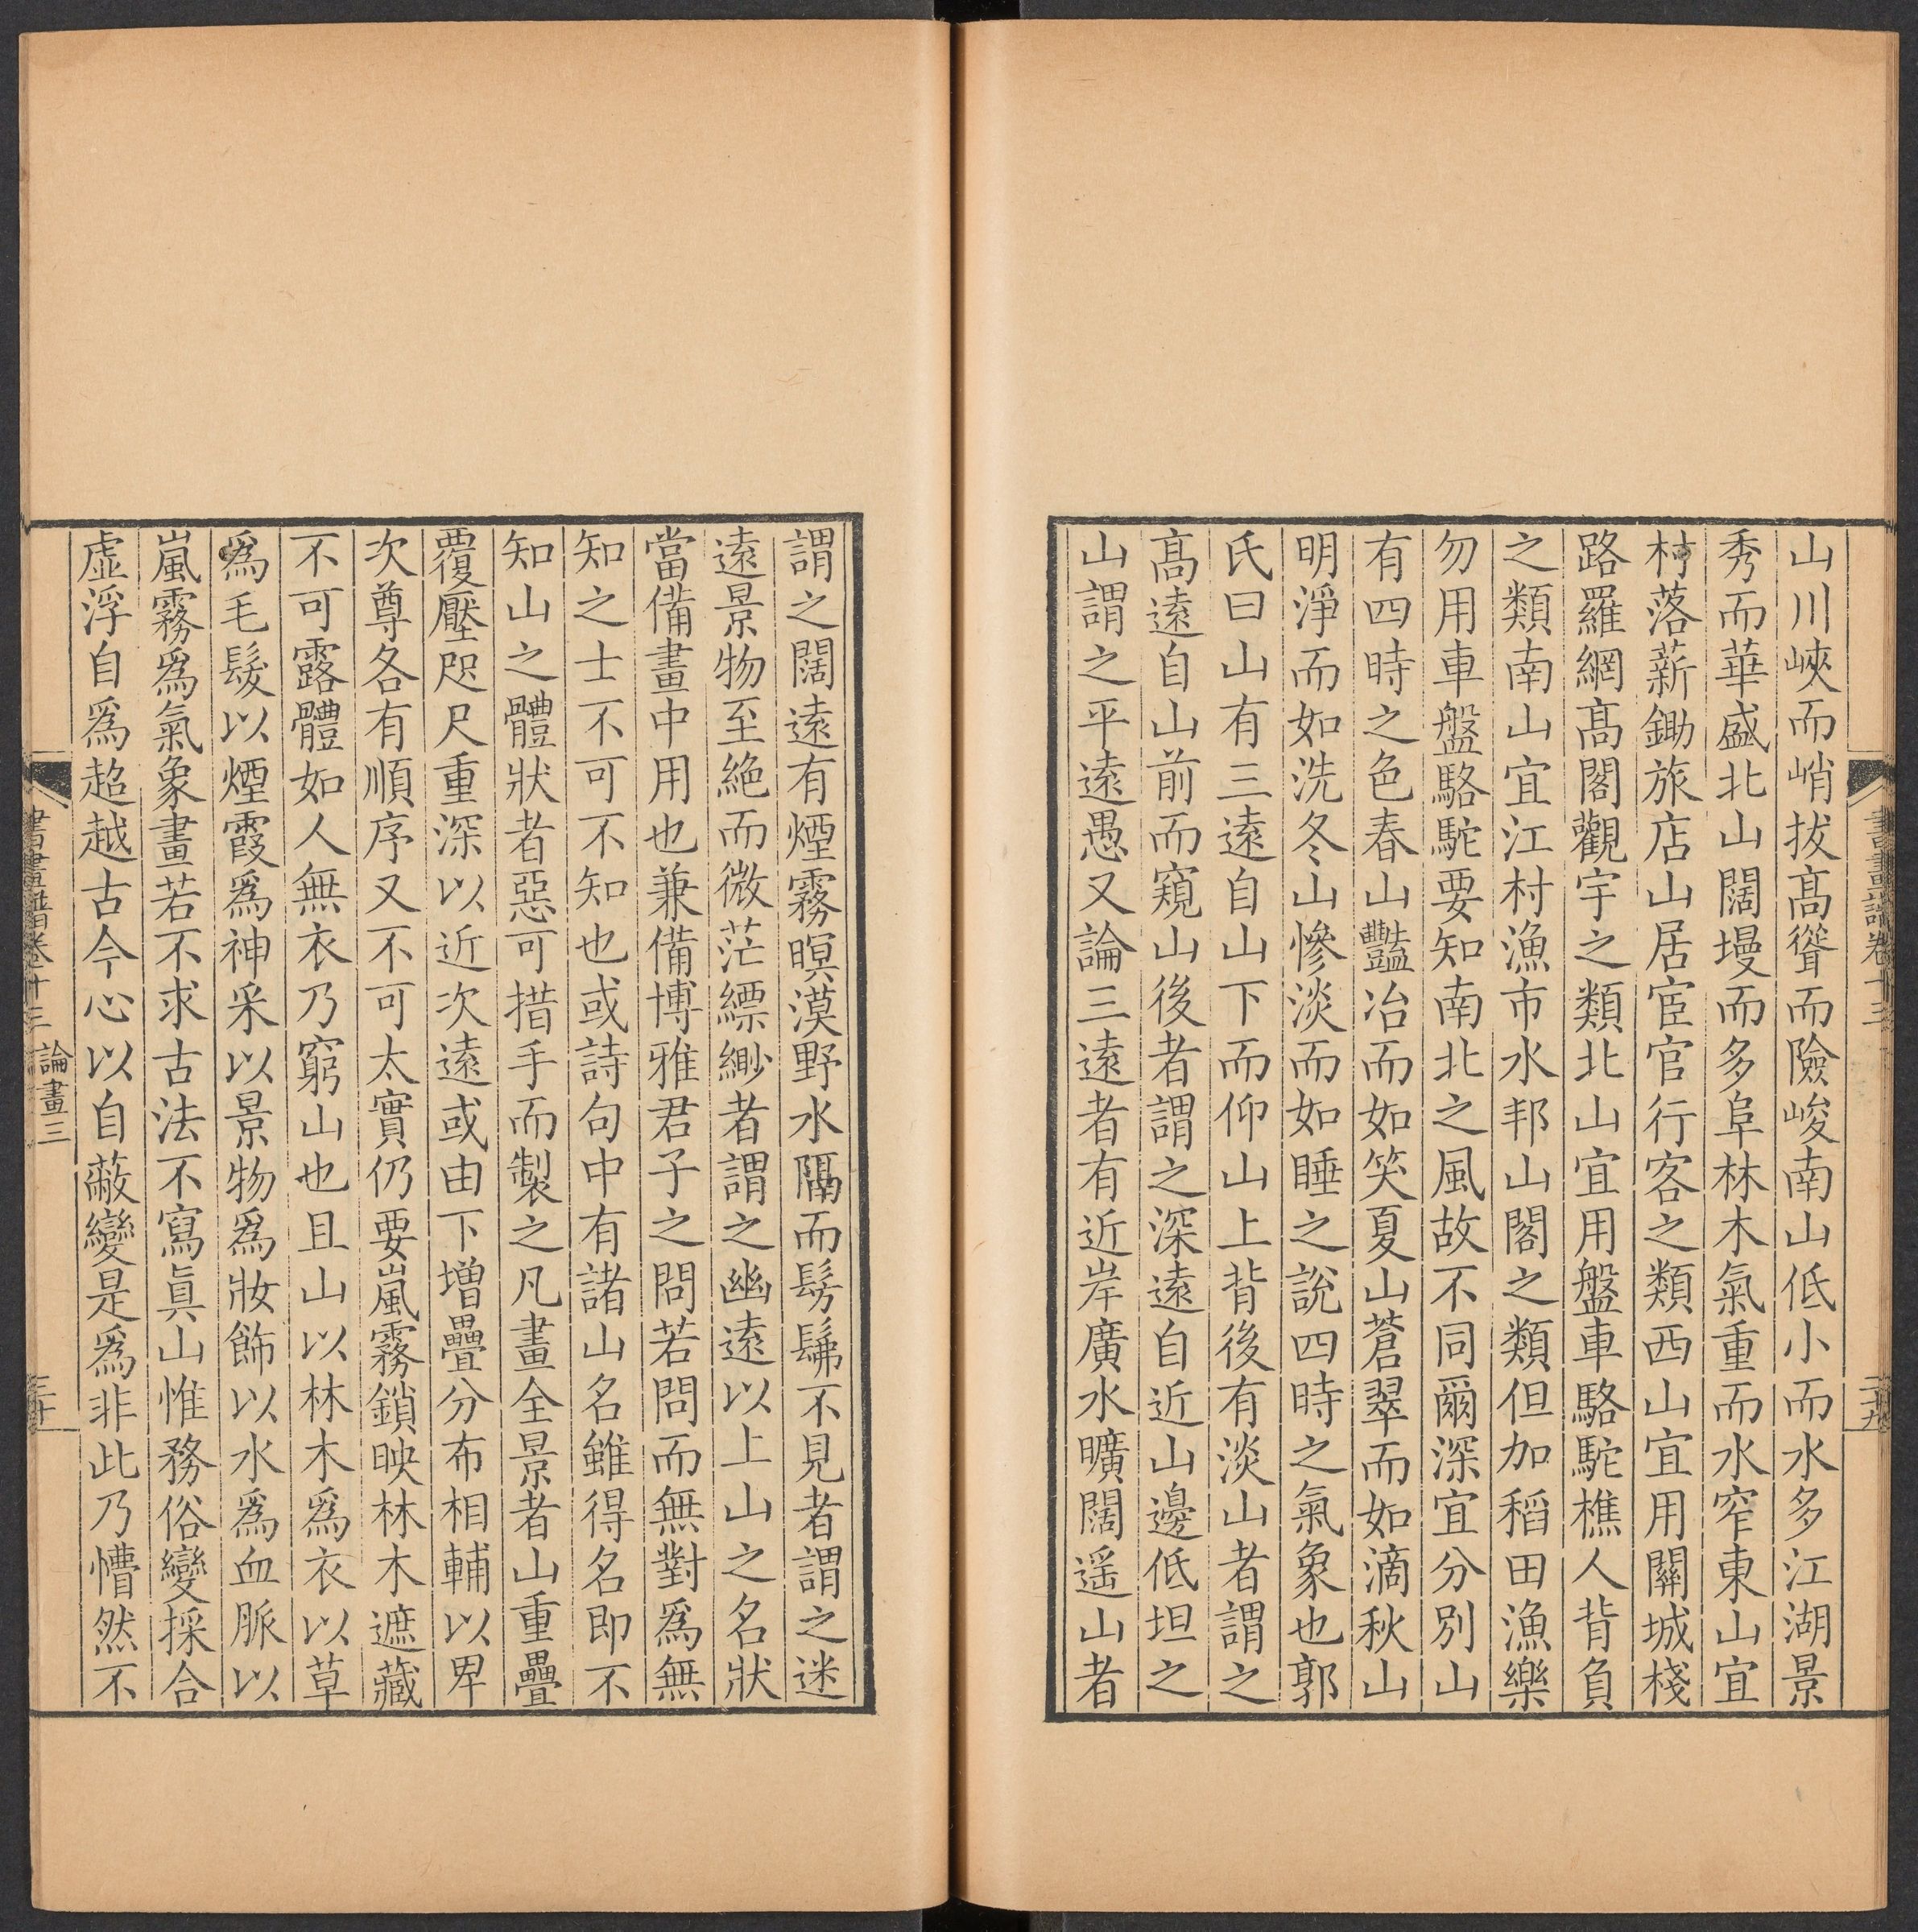 山川峽而峭拔髙聳而險峻南山低小而水多江湖景
秀而華盛北山闊墁而多阜林木氣重而水窄東山宜
村落薪鋤旅店山居宦官行客之類西山宜用關城棧
路羅網髙閣觀宇之類北山宜用盤車駱駝樵人背負
之類南山宜江村漁市水邦山閣之類但加稻田漁樂
勿用車盤駱駝要知南北之風故不同爾深宜分別山
有四時之色春山豔冶而如笑夏山蒼翠而如滴秋山
明淨而如洗冬山慘淡而如睡之說四時之氣象也郭
氏曰山有三遠自山下而仰山上背後有淡山者謂之
髙遠自山前而窺山後者謂之深遠自近山邊低坦之
山謂之平遠愚又論三遠者有近岸廣水曠闊遥山者
謂之闊遠有煙霧暝漠野水隔而髣髴不見者謂之迷
遠景物至絶而微茫縹緲者謂之幽遠以上山之名狀
當備畫中用也兼備博雅君子之問若問而無對爲無
知之士不可不知也或詩句中有諸山名雖得名即不
知山之體狀者惡可措手而製之凡畫全景者山重疊
覆壓咫尺重深以近次遠或由下增疊分布相輔以卑
次尊各有順序又不可太實仍要嵐霧鎖映林木遮藏
不可露體如人無衣乃窮山也且山以林木爲衣以草
爲毛髮以煙霞爲神采以景物爲妝飾以水爲血脈以
嵐霧爲氣象畫若不求古法不寫眞山惟務俗變採合
虛浮自爲超越古今心以自蔽變是爲非此乃懵然不
書畫譜卷十三
論畫三